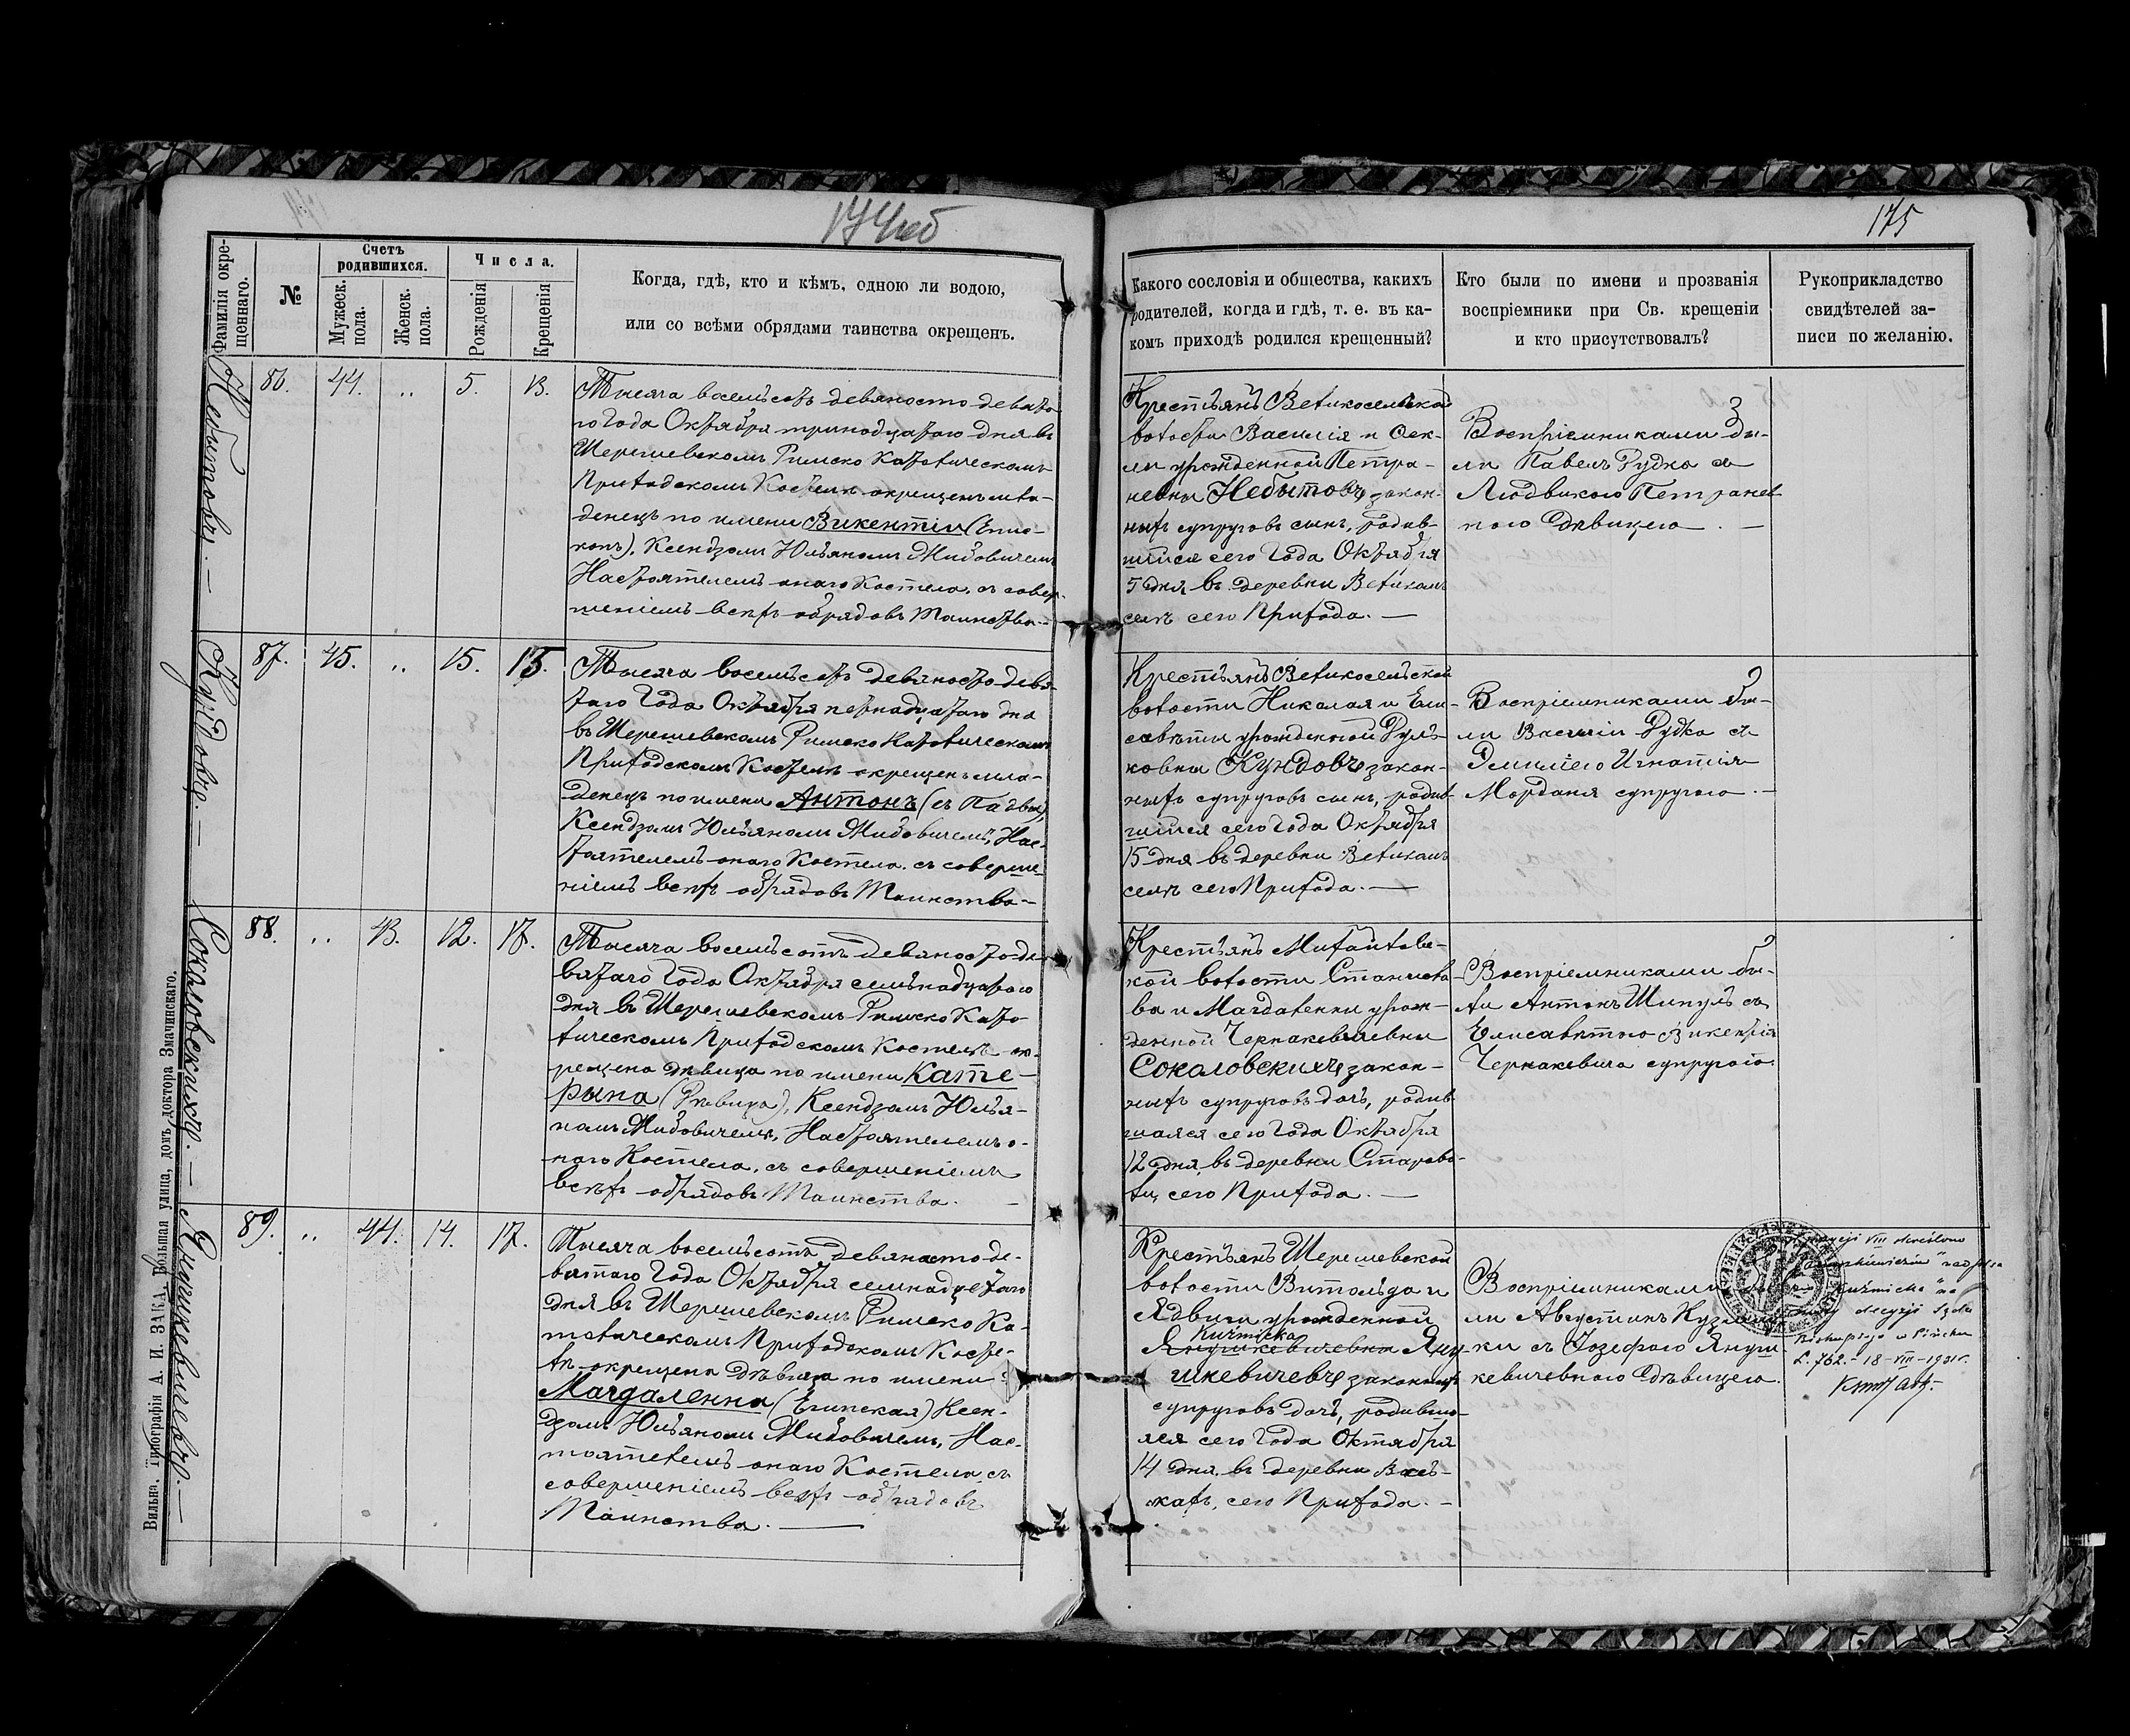 174об
175
Фамилія окре-
щеннаго.
№
Счетъ
родившихся.
Мужеск.
пола.
Женск.
пола.
Числа.
Рожденія
Крещенія
Когда, гдѣ, кто и кѣмъ, одною ли водою,
или со всѣми обрядами таинства окрещенъ.
Какого сословія и общества, какихъ
родителей, когда и гдѣ, т. е. въ ка-
комъ приходѣ родился крещенный?
Кто были по имени и прозванія
воспріемники при Св. крещеніи
и кто присутствовалъ?
Рукоприкладство
свидѣтелей за-
писи по желанію.
Небытовъ.—
86. 44. ,, 5. 13.
Тысяча восемьсотъ девяносто девято-
го года Октября тринадцатаго дня въ
Шерешевскомъ Римско Католическомъ
Приходскомъ Костелѣ окрещенъ мла-
денецъ по имени Викентій (Епис-
копъ), Ксендзомъ Юльяномъ
Настоятелемъ онаго Костела, съ совер-
шеніемъ всѣхъ обрядовъ Таинства.—
Крестьянъ Великосельской
волости Василія и Фек-
ли урожденной Петра-
невны Небытовъ закон-
ныхъ супруговъ сынъ, родив-
шійся сего года Октября
5 дня въ деревни Великомъ
селѣ сего Прихода.—
Воспріемниками бы-
ли Павелъ Рудко съ
Людвикою Петранев-
ною дѣвицею.—
Кундовъ.—
87. 45. ,, 15. 15.
Тысяча восемьсотъ девяносто девя-
таго года Октября пятнадцатаго дня
въ Шерешевскомъ Римско Католическомъ
Приходскомъ Костелѣ окрещенъ мла-
денецъ по имени Антонъ (съ Падвы),
Ксендзомъ Юльяномъ Нас-
тоятелемъ онаго Костела, съ соверше-
ніемъ всѣхъ обрядовъ Таинства—
Крестьянъ Великосельской
волости Николая и Ели-
саветы урожденной
ковны Кундовъ закон-
ныхъ супруговъ сынъ, родив-
шійся сего года Октября
15 дня въ деревни Великомъ
селѣ сего Прихода.—
Воспріемниками бы-
ли Василій Рудко съ
Эмиліею Игнатія
Марданя супругою.—
Соколовскихъ.—
88. ,, 43. 12. 17.
Тысяча восемьсотъ девяносто де-
вятаго года Октября семьнадцатаго
дня въ Шерешевскомъ Римско Като-
лическомъ Приходскомъ Костелѣ ок-
рещена дѣвица по имени Кате-
рына (Дѣвица), Ксендзомъ Юлья-
номъ Настоятелемъ о-
наго Костела, съ совершеніемъ
всѣхъ обрядовъ Таинства.—
Крестьянъ Михайловс-
кой волости Станисла-
ва и Магдалены урож-
денной Чернакевичевны
Соколовскихъ закон-
ныхъ супруговъ дочь, родив-
шаяся сего года Октября
12 дня, въ деревни Старово-
ли, сего Прихода.—
Воспріемниками бы-
ли Антонъ Шипуль съ
Елисаветою Викентія
Чернакевича супругою.
Янушкевичевъ.—
89. ,, 44. 14. 17.
Тысяча восемьсотъ девяносто де-
вятаго года Октября семнадцатаго
дня въ Шерешевскомъ Римско Ка-
толическомъ Приходскомъ Косте-
лѣ окрещена дѣвица по имени
Магдаленна (Египская) Ксен-
дзомъ Юльяномъ Нас-
тоятелемъ онаго Костела съ
совершеніемъ всѣхъ обрядовъ
Таинства.—
Крестьянъ Шерешевской
волости Витольда и
Ядвиги урожденной
Kuźmicka
Янушкевичевны Яну-
шкевичевъ законныхъ
супруговъ дочь, родивша-
яся сего года Октября
14 дня, въ деревни Вась-
кахъ, сего Прихода.—
Воспріемниками
ли Августинъ
ки съ Іозефою Януш-
кевичевною дѣвицею.
VIII skreślono
"Kuźmicka" na
mocy decyzji Sądu
Biskupiego w Pińsku
L. 762.- 18-VIII-1931 r.
Вильна. Типографія А. И. ЗАКА, Большая улица, домъ доктора Змачинскаго.